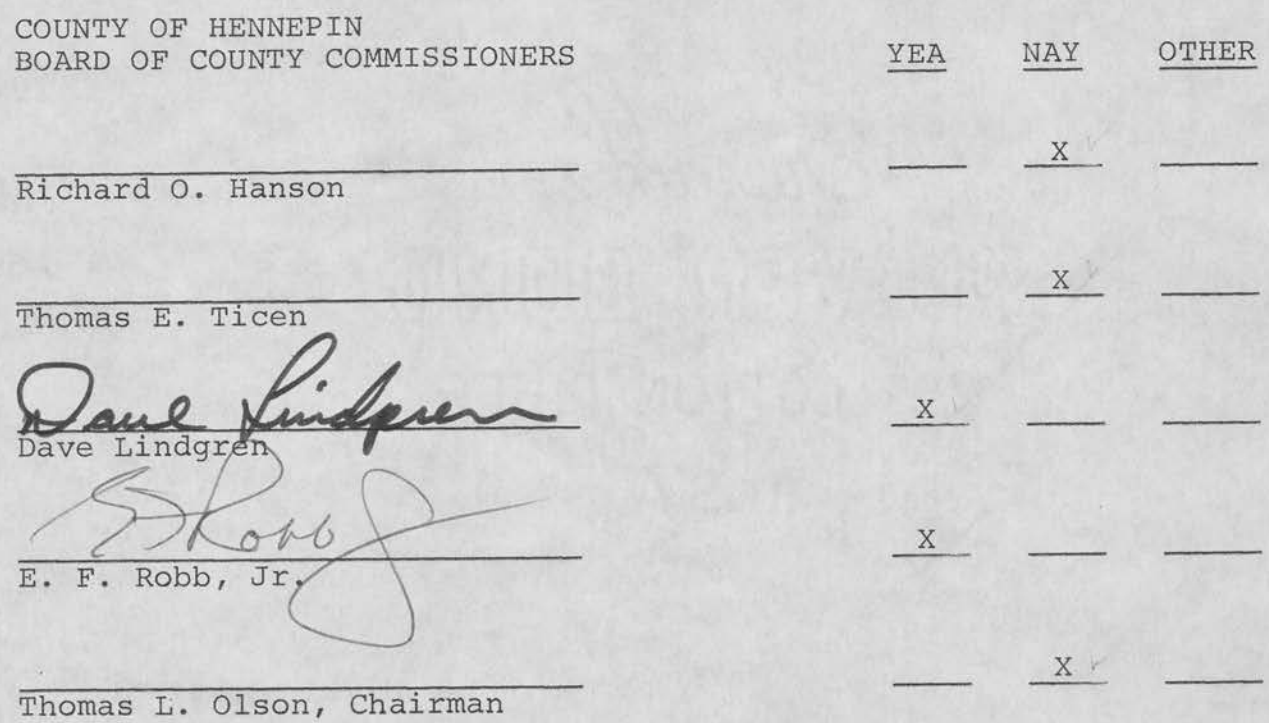 COUNTY OF HENNEPIN
BOARD OF COUNTY COMMISSIONERS YEA NAY OTHER
X
Richard O. Hanson
X
Thomas E. Ticen
Dave Lindgren X
Dave Lindgren
E F Robb Jr X
E. F. Robb, Jr.
X
Thomas L. Olson, Chairman